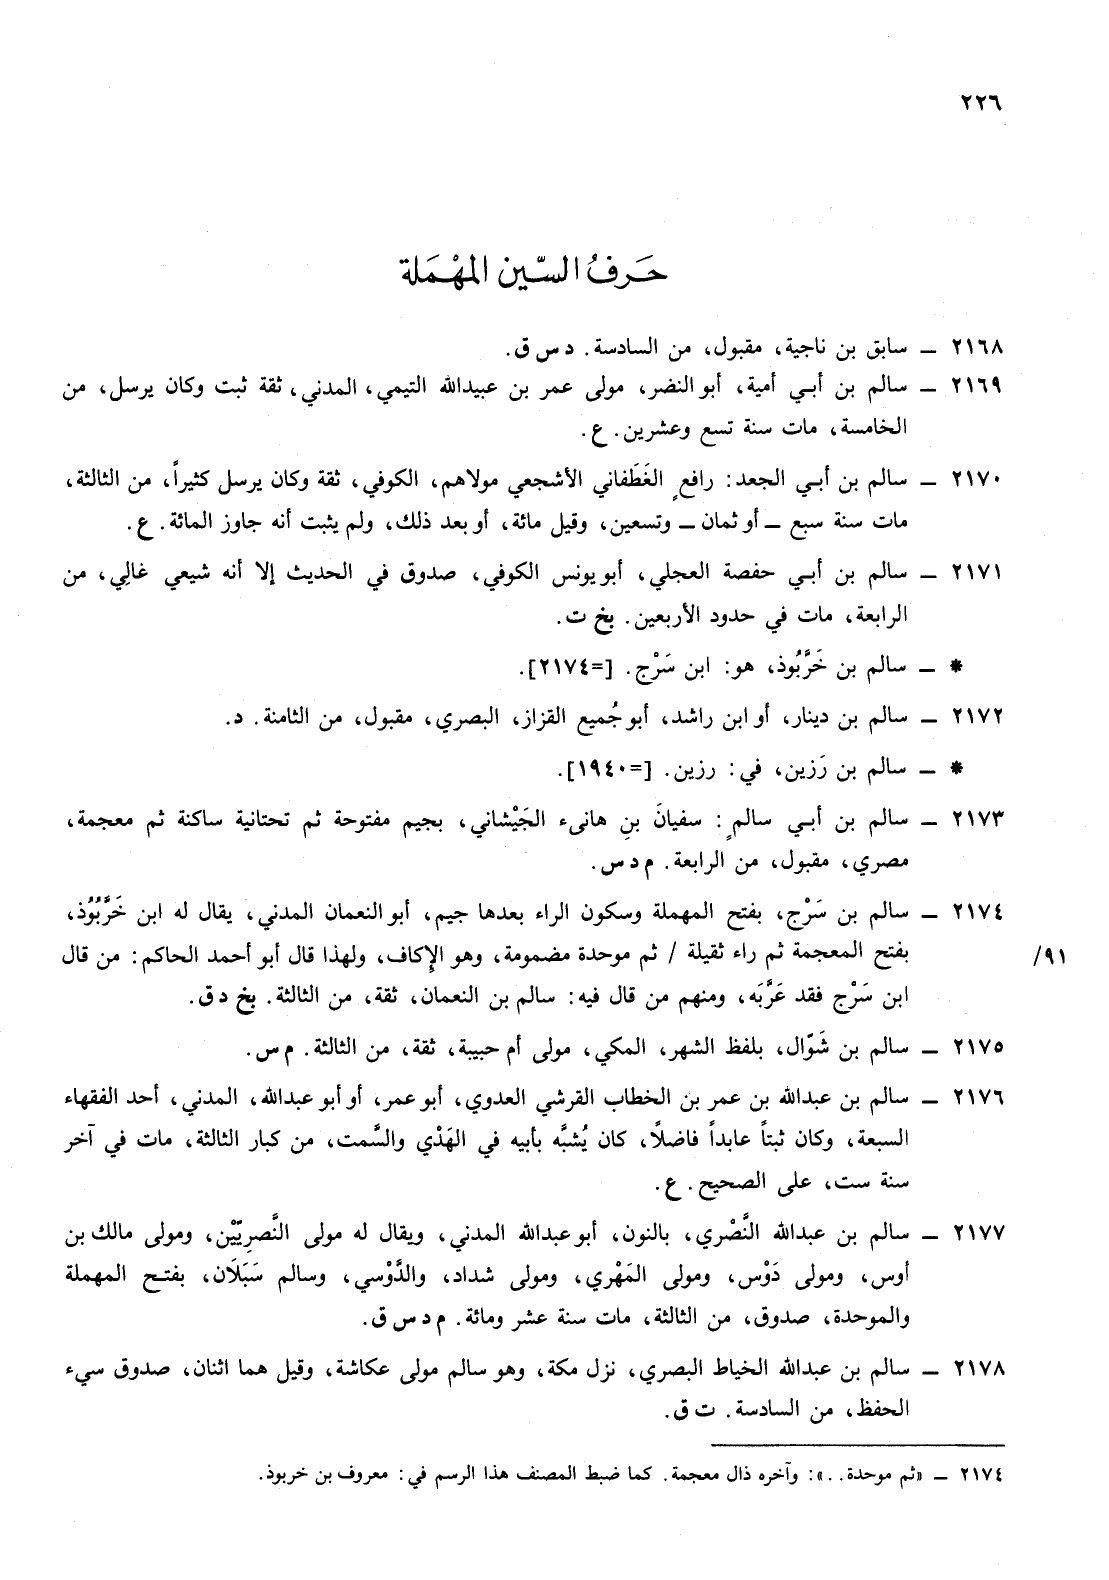 ٢٢٦
حَرفُ السّين المهْمَلة
٢١٦٨ – سابق بن ناجية، مقبول، من السادسة. د س ق.
٢١٦٩ – سالم بن أبي أمية، أبو النضر، مولى عمر بن عبيدالله التيمي، المدني، ثقة ثبت وكان يرسل، من
الخامسة، مات سنة تسع وعشرين. ع.
٢١٧٠ – سالم بن أبي الجعد: رافعٍ الغَطَفاني الأشجعي مولاهم، الكوفي، ثقة وكان يرسل كثيراً، من الثالثة،
مات سنة سبع – أو ثمان – وتسعين، وقيل مائة، أو بعد ذلك، ولم يثبت أنه جاوز المائة. ع.
٢١٧١ – سالم بن أبي حفصة العجلي، أبو يونس الكوفي، صدوق في الحديث إلا أنه شيعي غالِي، من
الرابعة، مات في حدود الأربعين. بخ ت.
* – سالم بن خَرَّبُوذ، هو: ابن سَرْج. [=٢١٧٤].
٢١٧٢ – سالم بن دينار، أو ابن راشد، أبو جُميع القزاز، البصري، مقبول، من الثامنة. د.
* – سالم بن رَزين، في: رزين. [=١٩٤٠].
٢١٧٣ – سالم بن أبي سالمٍ: سفيانَ بنِ هانىء الجَيْشاني، بجيم مفتوحة ثم تحتانية ساكنة ثم معجمة،
مصري، مقبول، من الرابعة. م د س.
٢١٧٤ – سالم بن سَرْج، بفتح المهملة وسكون الراء بعدها جيم، أبو النعمان المدني، يقال له ابن خَرَّبُوُذ،
بفتح المعجمة ثم راء ثقيلة / ثم موحدة مضمومة، وهو الإِكاف، ولهذا قال أبو أحمد الحاكم: من قال
٩١/
ابن سَرْج فقد عَرَّبَه، ومنهم من قال فيه: سالم بن النعمان، ثقة، من الثالثة. بخ د ق.
٢١٧٥ – سالم بن شَوّال، بلفظ الشهر، المكي، مولى أم حبيبة، ثقة، من الثالثة. م س.
٢١٧٦ – سالم بن عبدالله بن عمر بن الخطاب القرشي العدوي، أبو عمر، أو أبو عبدالله، المدني، أحد الفقهاء
السبعة، وكان ثبتاً عابداً فاضلاً، كان يُشبَّه بأبيه في الهَدْي والسَّمت، من كبار الثالثة، مات في آخر
سنة ست، على الصحيح. ع.
٢١٧٧ – سالم بن عبدالله النَّصْري، بالنون، أبو عبدالله المدني، ويقال له مولى النَّصرِيّيْن، ومولى مالك بن
أوس، ومولى دَوْس، ومولى المَهْري، ومولى شداد، والدَّوْسي، وسالم سَبَلَان، بفتح المهملة
والموحدة، صدوق، من الثالثة، مات سنة عشر ومائة. م د س ق.
٢١٧٨ – سالم بن عبدالله الخياط البصري، نزل مكة، وهو سالم مولى عكاشة، وقيل هما اثنان، صدوق سيء
الحفظ، من السادسة. ت ق.
٢١٧٤ – «ثم موحدة..»: وآخره ذال معجمة. كما ضبط المصنف هذا الرسم في: معروف بن خربوذ.